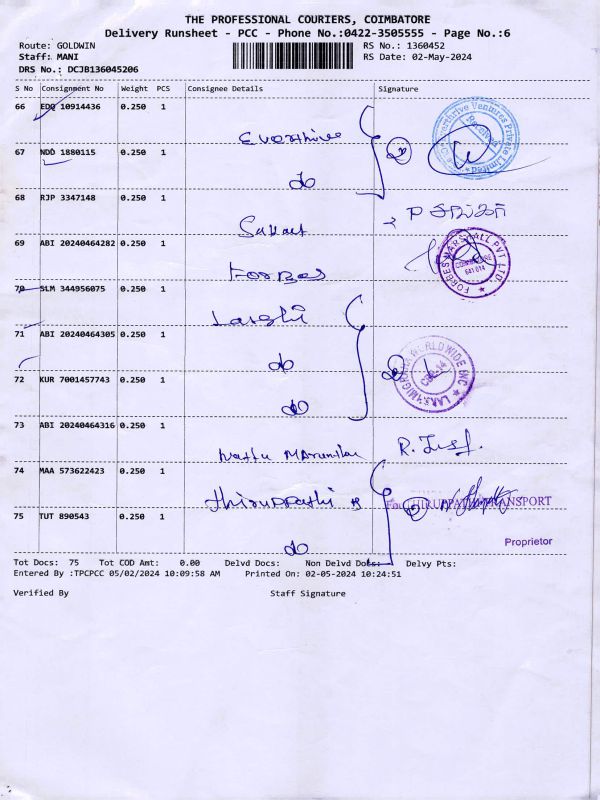 THE PROFESSIONAL COURIERS, COIMBATORE
Delivery Runsheet - PCC - Phone No.:0422-3505555 - Page No.:6
Route: GOLDWIN RS No.: 1360452
Staff: MANI RS Date: 02-May-2024
DRS No.: DCJB136045206
S No Consignment No Weight PCS Consignee Details Signature
66 EDQ 10914436 0.250 1
Everthrive
67 NDD 1880115 0.250 1
do
68 RJP 3347148 0.250 1
69 ABI 20240464282 0.250 1
Forbes
FORBES MARSHALL PVT LTD.
641 014
70 SLM 344956075 0.250 1
71 ABI 20240464305 0.250 1
do
72 KUR 7001457743 0.250 1
do
73 ABI 20240464316 0.250 1
74 MAA 573622423 0.250 1
Thiruppathi
For THIRUPPATHI TRANSPORT
75 TUT 890543 0.250 1
do
Proprietor
Tot Docs: 75 Tot COD Amt: 0.00 Delvd Docs: Non Delvd Docs: Delvy Pts:
Entered By :TPCPCC 05/02/2024 10:09:58 AM Printed On: 02-05-2024 10:24:51
Verified By Staff Signature